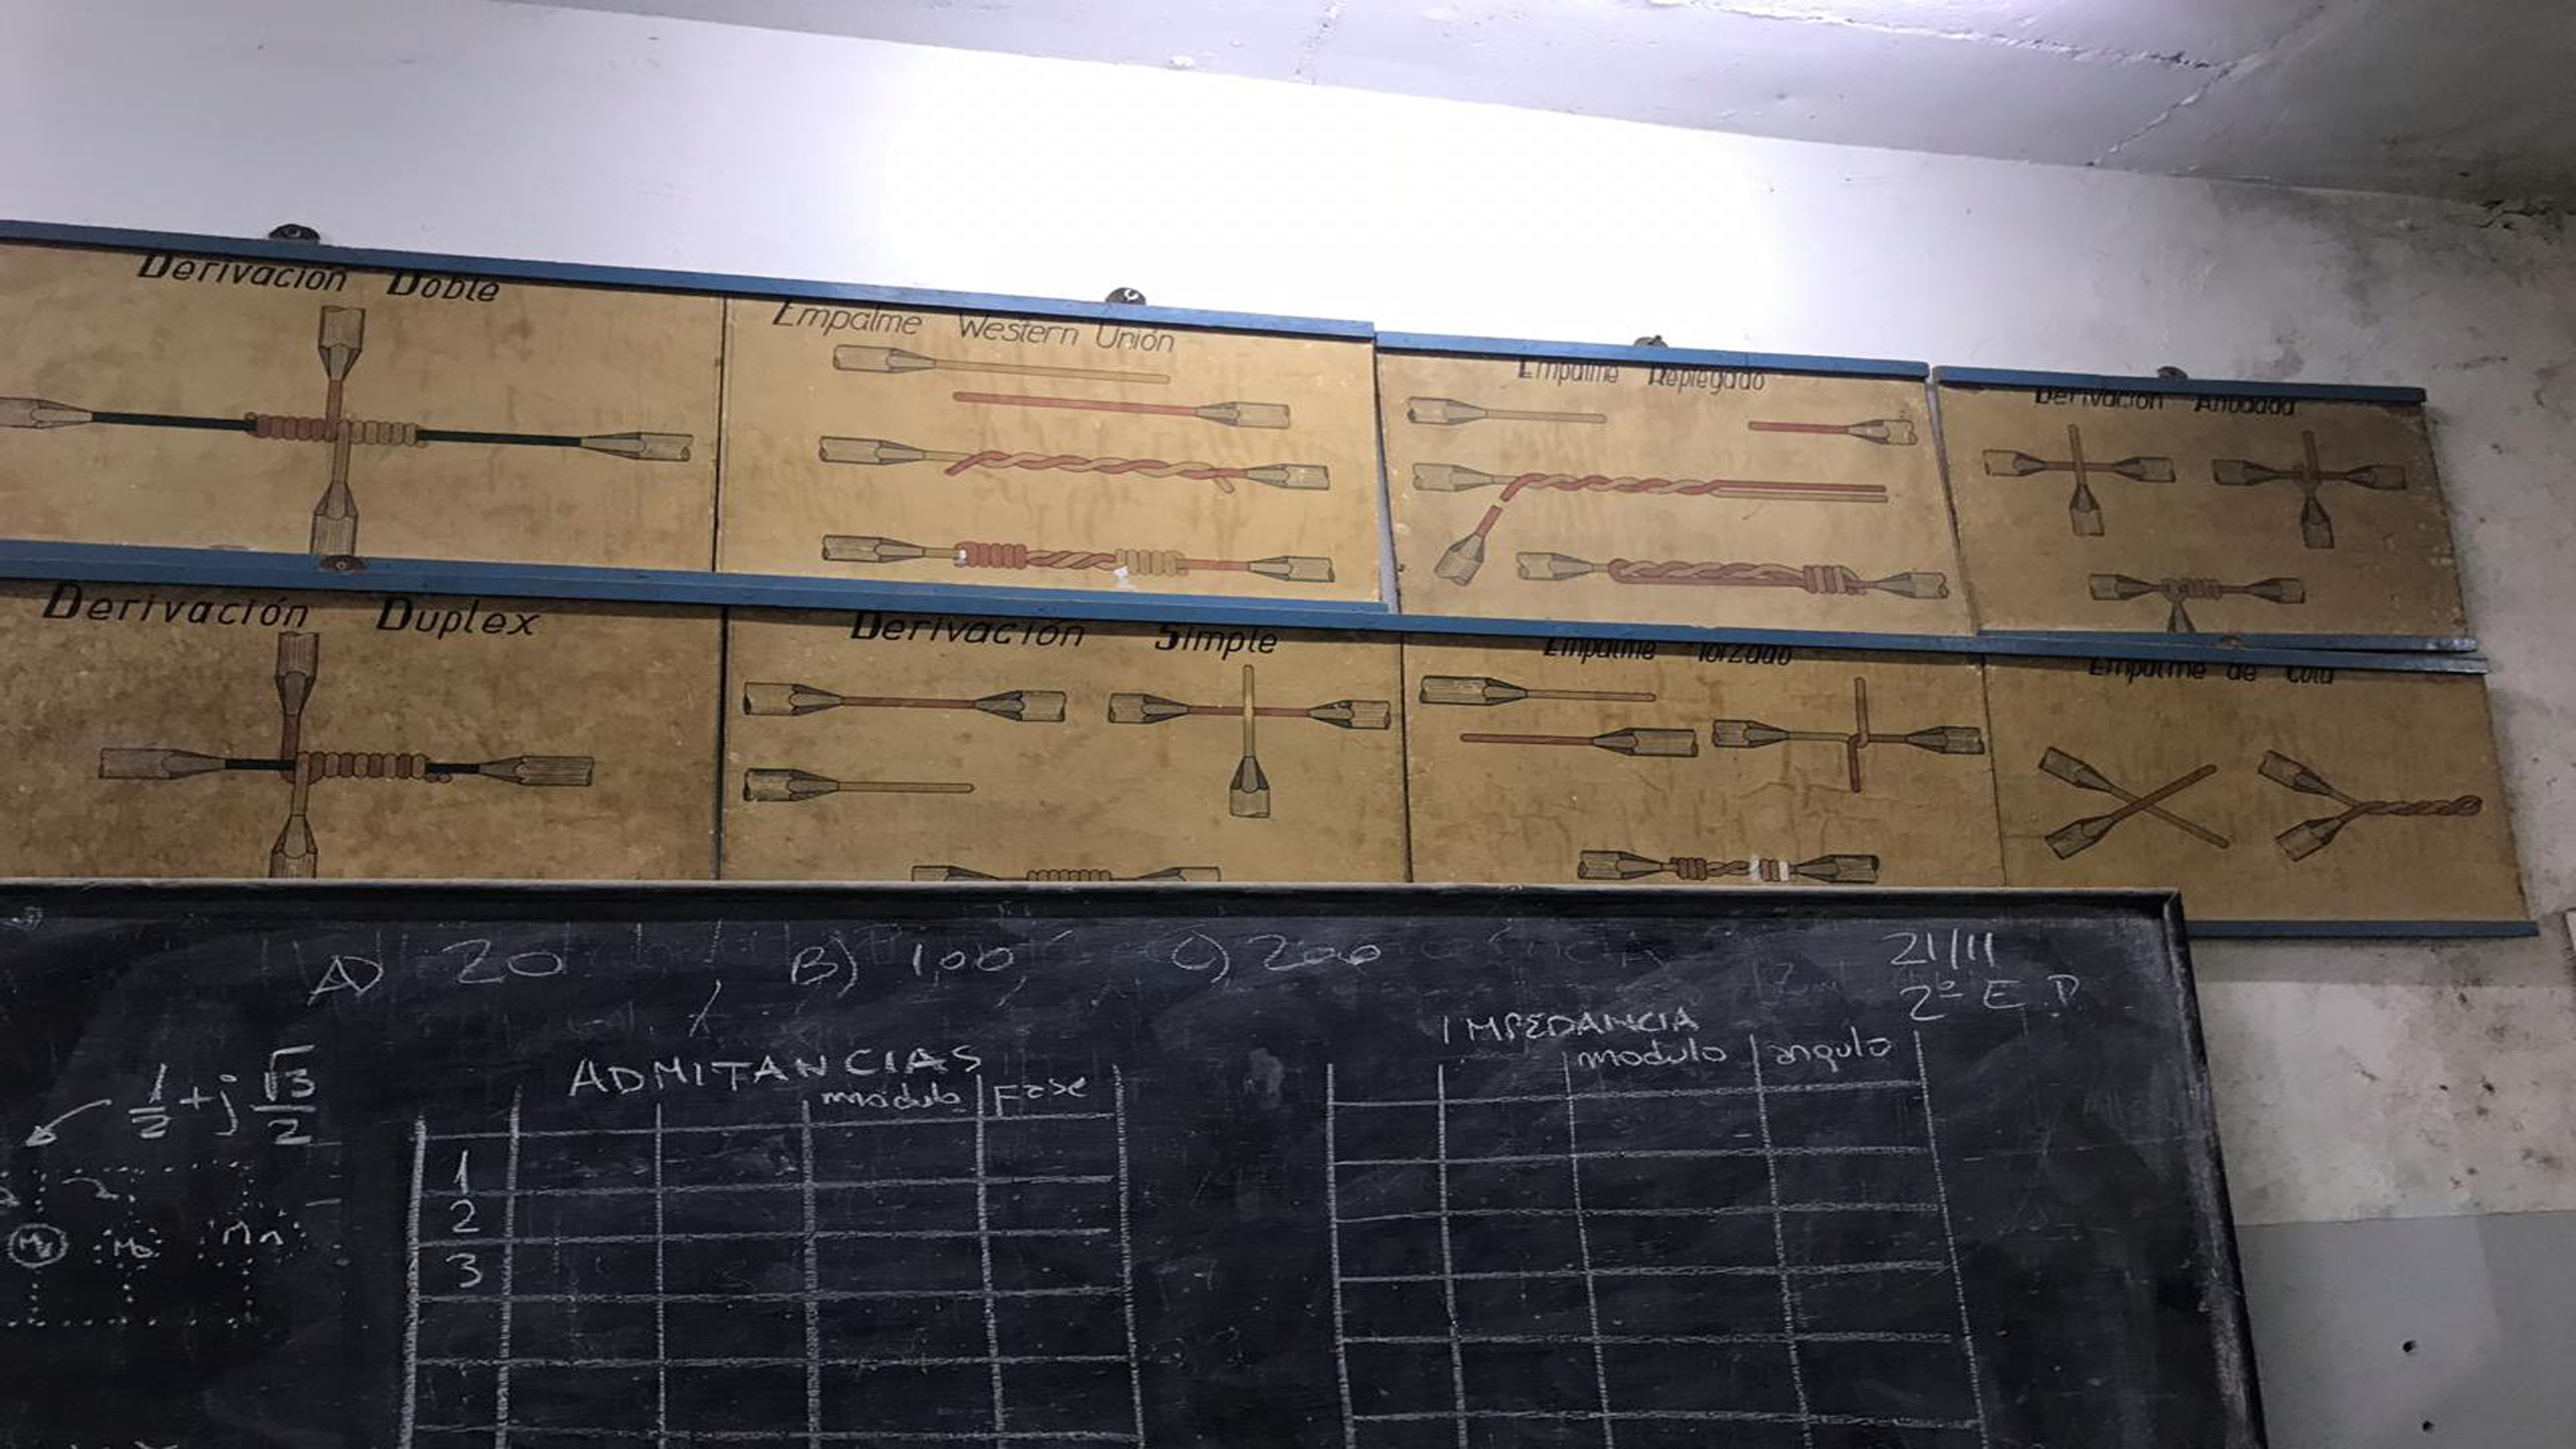 Derivación Doble
Empalme Western Unión
Empalme Replegado
Derivación Anudada
Derivación Duplex
Derivación Simple
Empalme Torzado
Empalme de Cola
A) 20 B) 100 C) 200
21/11
2º E.D
1/2 + j √3/2
ADMITANCIAS
modulo Fase
1
2
3
IMPEDANCIA
modulo angulo